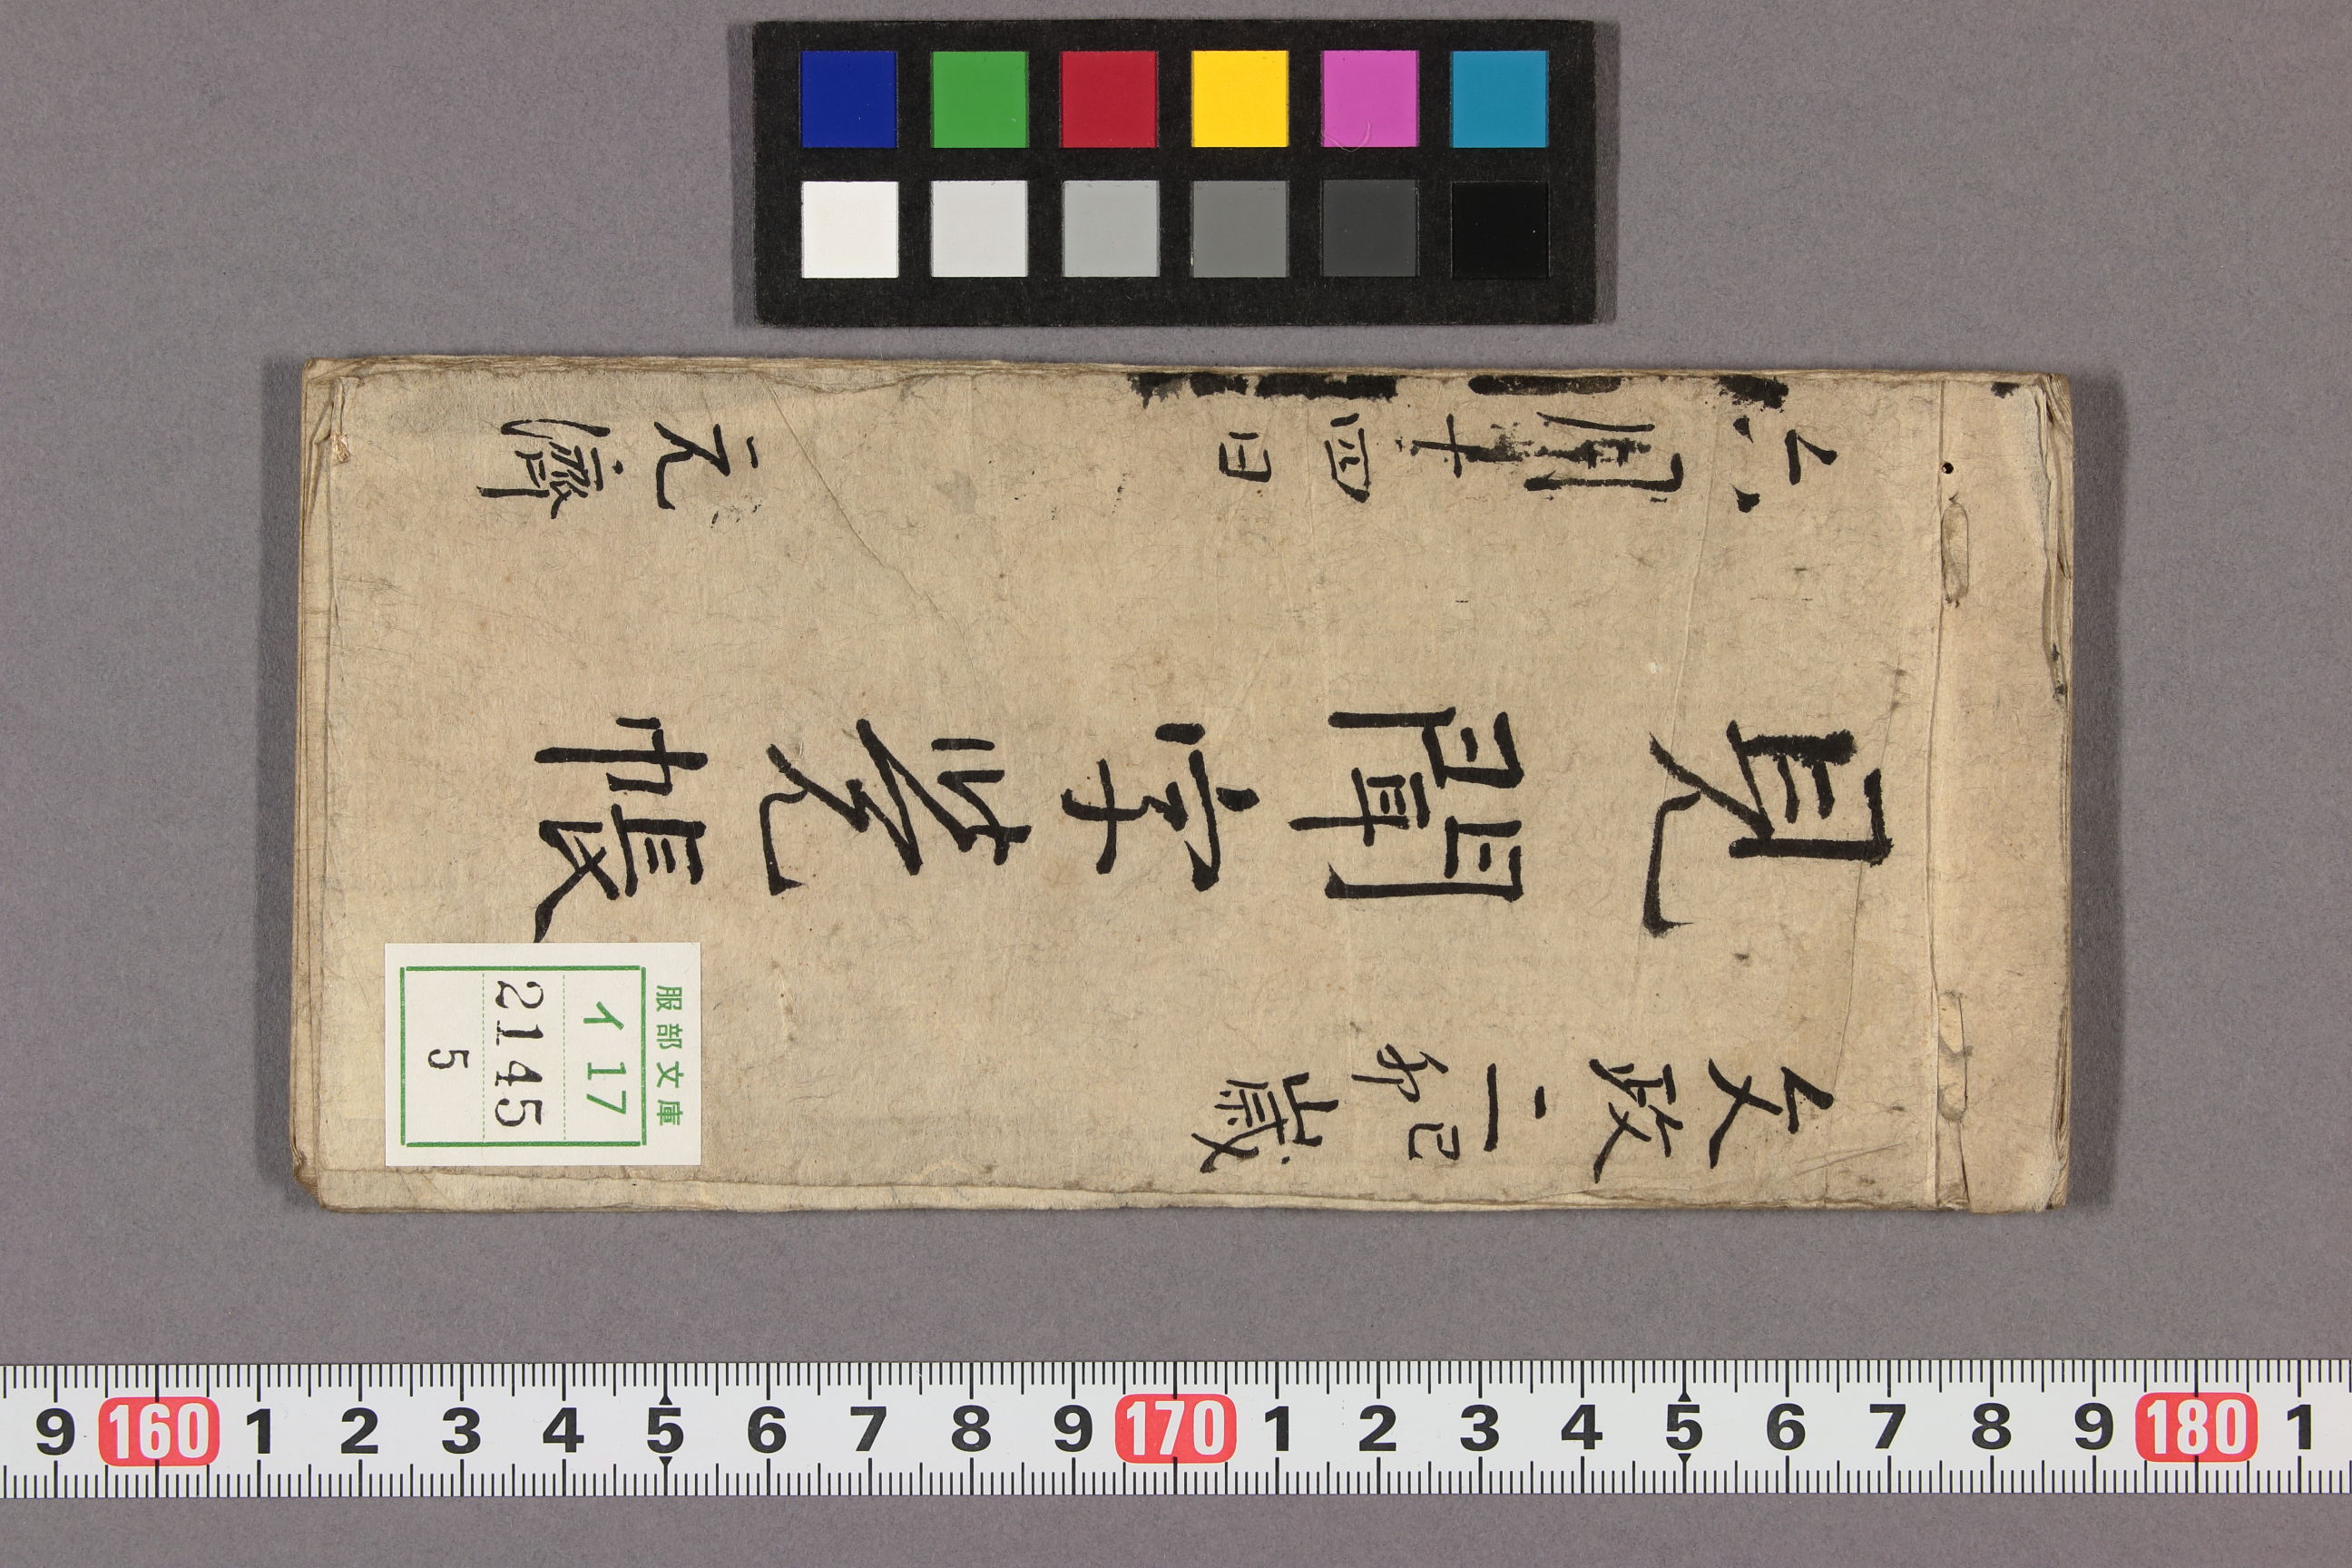 文政二己卯歳
見聞字覚帳
六月十四日 元濟
服部文庫
イ 17
2145
5
9 160 1 2 3 4 5 6 7 8 9 170 1 2 3 4 5 6 7 8 9 180 1